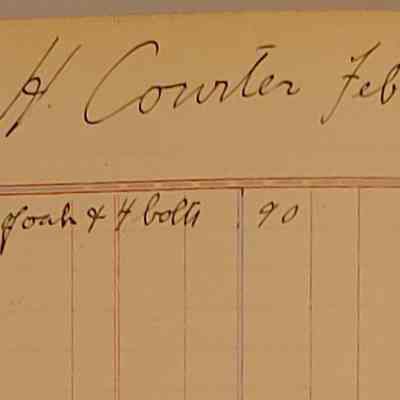 H. Courter Feb
& 4 bolts 90